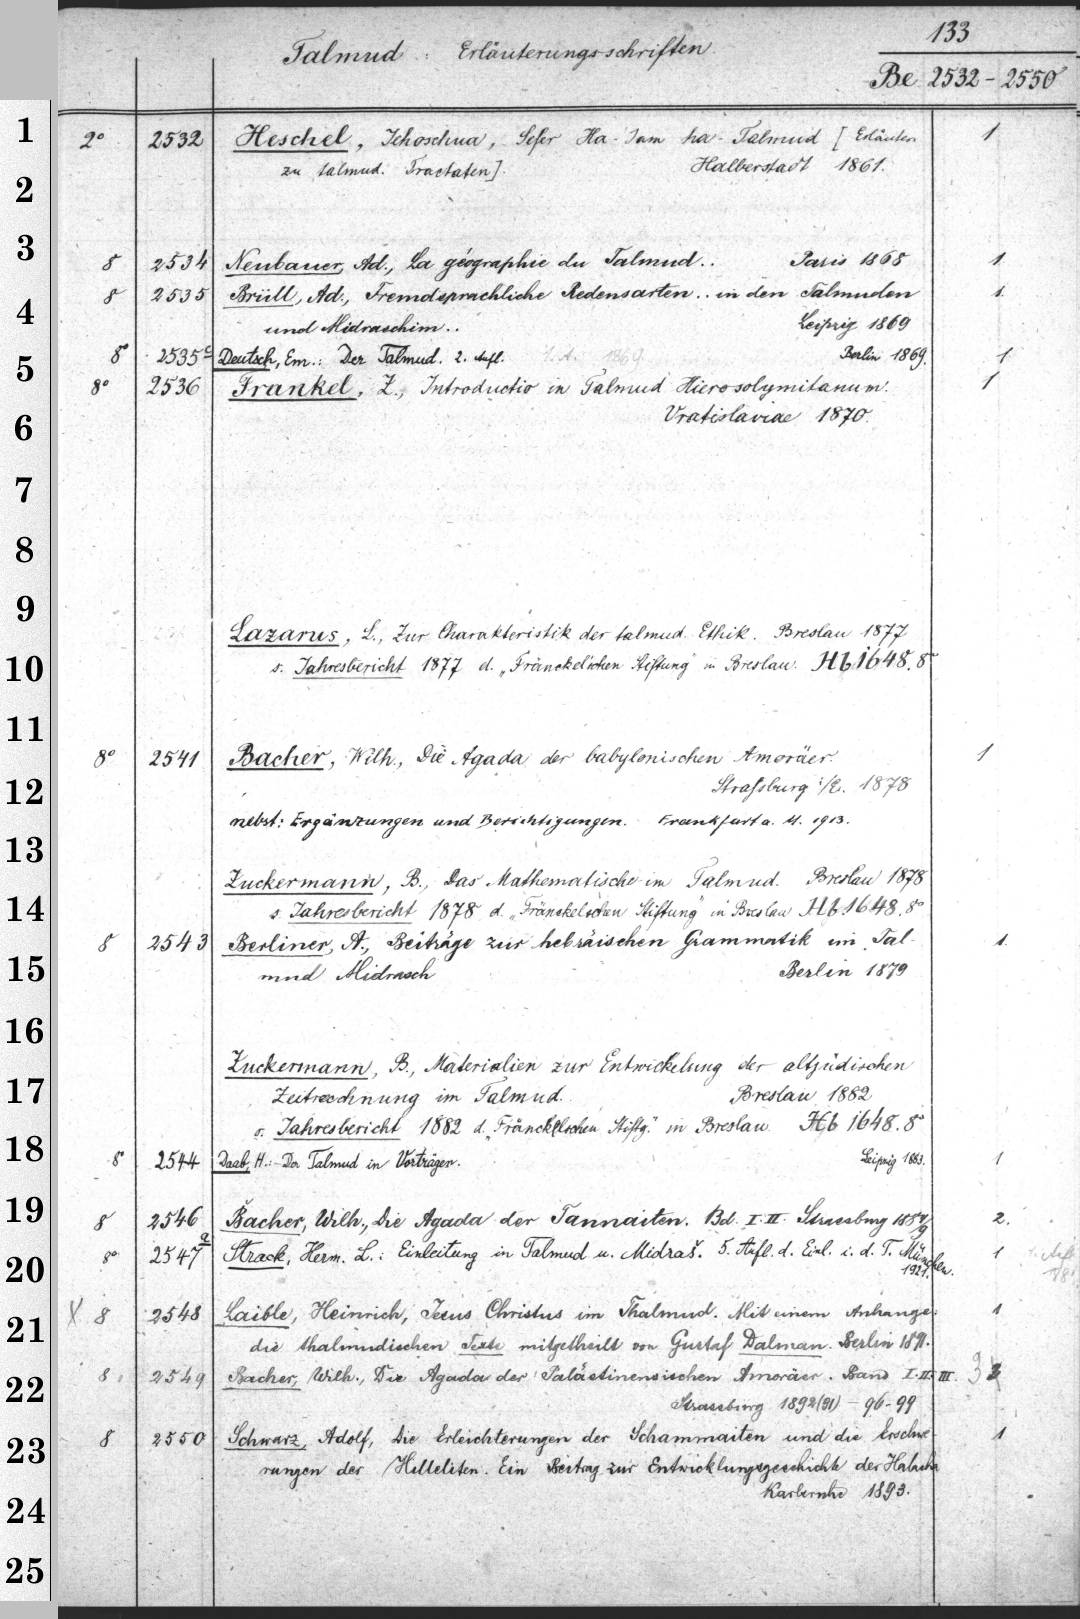 133
Talmud : Erläuterungsschriften.
Be 2532-2550
1
2° 2532 Heschel, Jehoschua, Sefer Ha-Jam ha-Talmud [Erläuter. 1
zu talmud. Tractaten]. Halberstadt 1861.
2
3
8 2534 Neubauer, Ad., La géographie du Talmud.. Paris 1868 1
8 2535 Brüll, Ad., Fremdsprachliche Redensarten.. in den Talmuden 1
4
und Midraschim.. Leipzig 1869
8° 2535c Deutsch, Em.: Der Talmud. 2. Aufl. Berlin 1869. 1
5
8° 2536 Frankel, Z., Introductio in Talmud Hierosolymitanum. 1
Vratislaviae 1870.
6
7
8
9
Lazarus, L., Zur Charakteristik der talmud. Ethik. Breslau 1877
10
s. Jahresbericht 1877 d. „Fränckel'schen Stiftung" in Breslau. Hb 1648. 8°
11
8° 2541 Bacher, Wilh., Die Agada der babylonischen Amoräer. 1
12
Strafsburg i/E. 1878
nebst: Ergänzungen und Berichtigungen. Frankfurt a. M. 1913.
13
Zuckermann, B., Das Mathematische im Talmud. Breslau 1878
14
s. Jahresbericht 1878 d. „Fränckel'schen Stiftung" in Breslau Hb 1648. 8°
8 2543 Berliner, A., Beiträge zur hebräischen Grammatik im Tal- 1.
15
mud Midrasch Berlin 1879
16
Zuckermann, B., Materialien zur Entwickelung der altjüdischen
17
Zeitrechnung im Talmud. Breslau 1882
s. Jahresbericht 1882 d. „Fränckelschen Stiftg." in Breslau. Hb 1648. 8°
18
8° 2544 Daab, H.: Der Talmud in Vorträgen. Leipzig 1883. 1
19
8 2546 Bacher, Wilh., Die Agada der Tannaiten. Bd. I-II. Strassburg 2.
8° 2547a Strack, Herm. L.: Einleitung in Talmud u. Midraš. 5. Aufl. d. Einl. i. d. T. München. 1
20
1921.
X 8 2548 Laible, Heinrich, Jesus Christus im Thalmud. Mit einem Anhange: 1
21
die thalmudischen Texte mitgetheilt von Gustaf Dalman. Berlin 1891.
8. 2549 Bacher, Wilh., Die Agada der Palästinensischen Amoräer. Band I-II-III. 3
22
Strassburg 1892(91) - 96-99
8 2550 Schwarz, Adolf, Die Erleichterungen der Schammaiten und die Erschwe- 1
23
rungen der Hilleliten. Ein Beitrag zur Entwicklungsgeschichte der Halacha
Karlsruhe 1893.
24
25